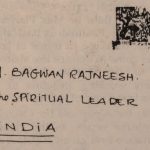 BAGWAN RAJNEESH.
SPIRITUAL LEADER
INDIA